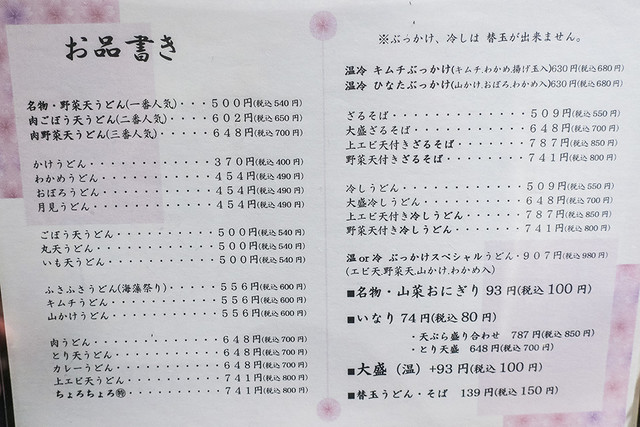 お品書き
名物・野菜天うどん(一番人気)・・・500円(税込540円)
肉ごぼう天うどん(二番人気)・・・602円(税込650円)
肉野菜天うどん(三番人気)・・・648円(税込700円)
かけうどん・・・・・・・・・・370円(税込400円)
わかめうどん・・・・・・・・・454円(税込490円)
おぼろうどん・・・・・・・・・454円(税込490円)
月見うどん・・・・・・・・・・454円(税込490円)
ごぼう天うどん・・・・・・・・500円(税込540円)
丸天うどん・・・・・・・・・・500円(税込540円)
いも天うどん・・・・・・・・・500円(税込540円)
ふさふさうどん(海藻祭り)・・・・556円(税込600円)
キムチうどん・・・・・・・・・556円(税込600円)
山かけうどん・・・・・・・・・556円(税込600円)
肉うどん・・・・・・・・・・・648円(税込700円)
とり天うどん・・・・・・・・・648円(税込700円)
カレーうどん・・・・・・・・・648円(税込700円)
上エビ天うどん・・・・・・・・741円(税込800円)
ちょろちょろ㊕・・・・・・・・741円(税込800円)
※ぶっかけ、冷しは 替玉が出来ません。
温冷 キムチぶっかけ(キムチ,わかめ,揚げ玉入)630円(税込680円)
温冷 ひなたぶっかけ(山かけ,おぼろ,わかめ入)630円(税込680円)
ざるそば・・・・・・・・・・・509円(税込550円)
大盛ざるそば・・・・・・・・・648円(税込700円)
上エビ天付きざるそば・・・・・787円(税込850円)
野菜天付きざるそば・・・・・・741円(税込800円)
冷しうどん・・・・・・・・・・509円(税込550円)
大盛冷しうどん・・・・・・・・648円(税込700円)
上エビ天付き冷しうどん・・・・787円(税込850円)
野菜天付き冷しうどん・・・・・741円(税込800円)
温or冷 ぶっかけスペシャルうどん・907円(税込980円)
(エビ天,野菜天,山かけ,わかめ入)
■名物・山菜おにぎり 93円(税込100円)
■いなり 74円(税込80円)
・天ぷら盛り合わせ 787円(税込850円)
・とり天盛 648円(税込700円)
■大盛(温)+93円(税込100円)
■替玉うどん・そば 139円(税込150円)